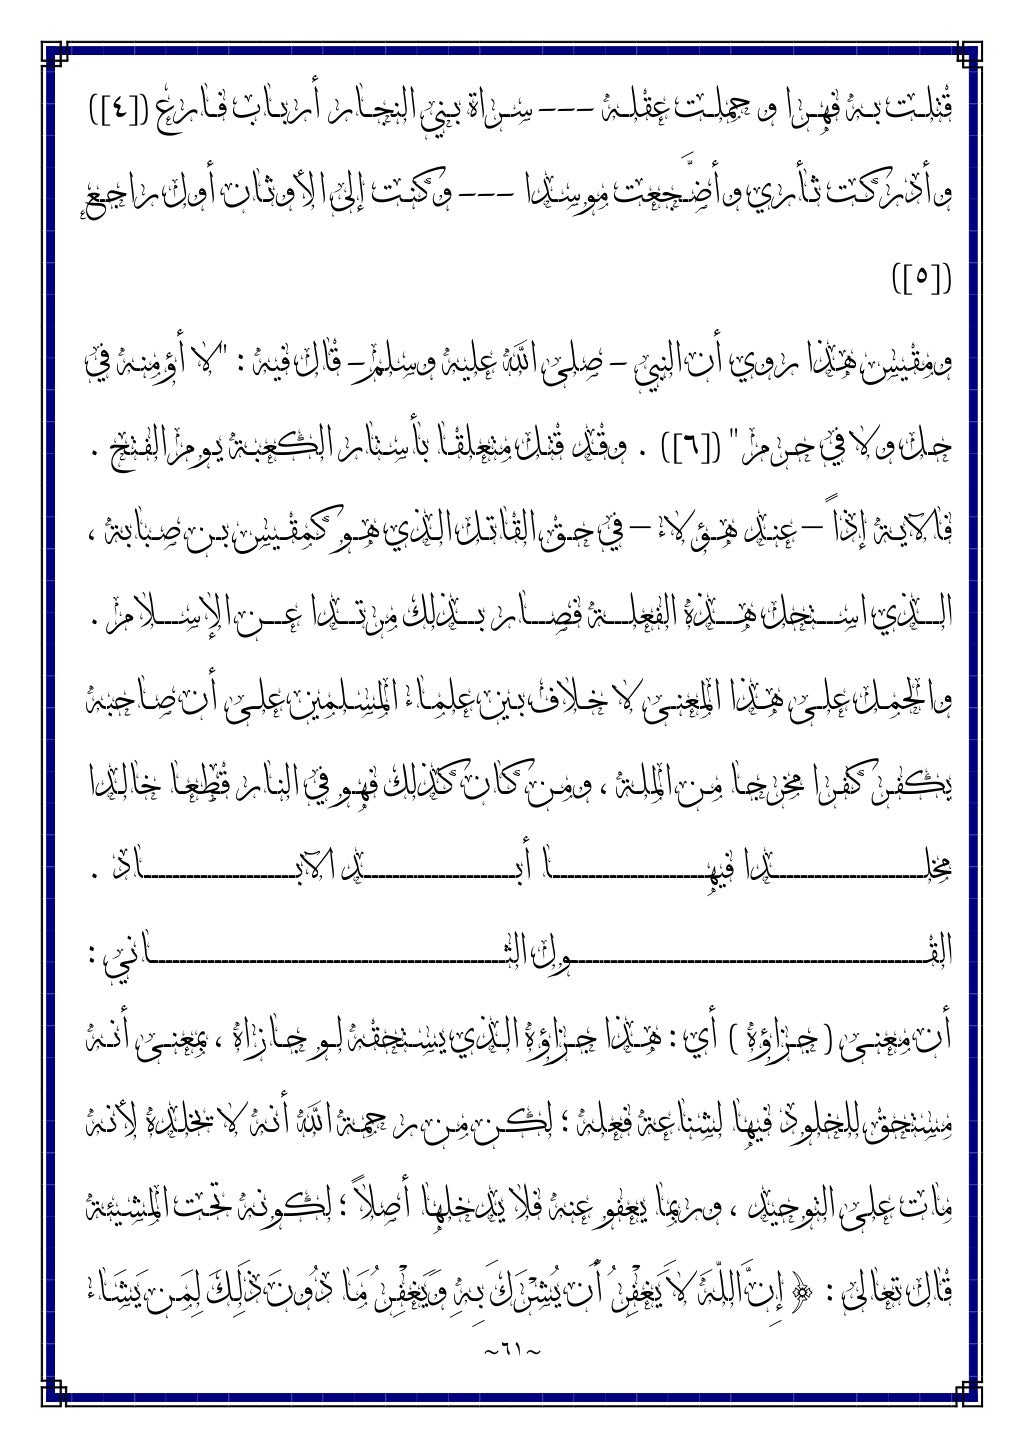 قتلت به فهرا و حملت عقله --- سراة بني النجار أرباب فارع ([٤])
وأدركت ثأري وأضَّجعت موسدا --- وكنت إلى الأوثان أول راجع
([٥])
ومقيس هذا روي أن النبي – صلى الله عليه وسلم – قال فيه : "لا أؤمنه في
حل ولا في حرم " ([٦]) . وقد قتل متعلقا بأستار الكعبة يوم الفتح .
فالآية إذاً – عند هؤلاء – في حق القاتل الذي هو كمقيس بن صبابة ،
الذي استحل هذه الفعلة فصار بذلك مرتدا عن الإسلام .
والحمل على هذا المعنى لا خلاف بين علماء المسلمين على أن صاحبه
يكفر كفرا مخرجا من الملة ، ومن كان كذلك فهو في النار قطعا خالدا
مخلــــــدا فيهــــــا أبــــــد الآبــــــاد .
القــــــول الثــــــاني :
أن معنى ( جزاؤه ) أي : هذا جزاؤه الذي يستحقه لو جازاه ، بمعنى أنه
مستحق للخلود فيها لشناعة فعله ؛ لكن من رحمة الله أنه لا تخلده لأنه
مات على التوحيد ، وربما يعفو عنه فلا يدخلها أصلاً ؛ لكونه تحت المشيئة
قال تعالى : ﴿ إِنَّ اللّهَ لاَ يَغْفِرُ أَن يُشْرَكَ بِهِ وَيَغْفِرُ مَا دُونَ ذَلِكَ لِمَن يَشَاء
~٦١~